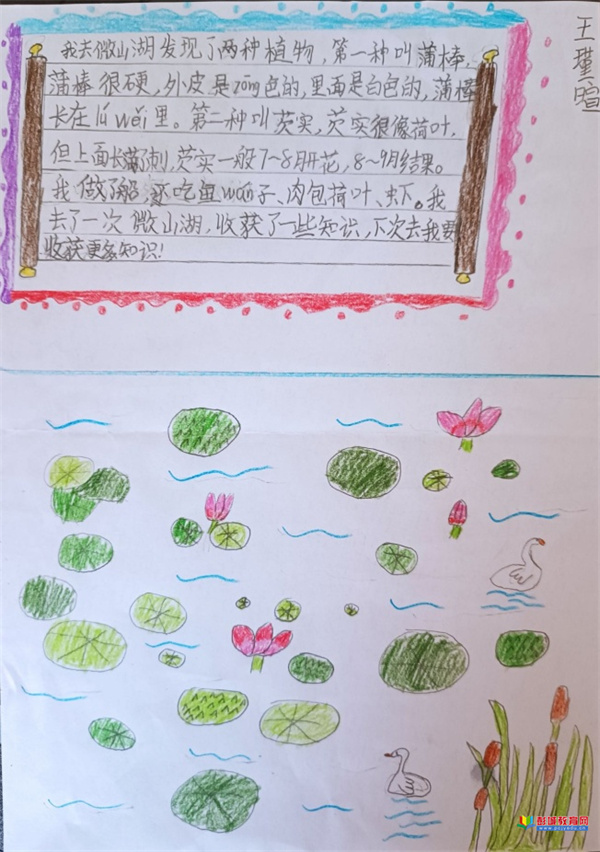 王瑾暄
我去微山湖发现了两种植物,第一种叫蒲棒.
蒲棒很硬,外皮是zōng色的,里面是白色的,蒲棒
长在lú wěi里。第二种叫芡实,芡实很像荷叶,
但上面长满了刺,芡实一般7~8月开花,8~9月结果。
我做了船,还吃鱼wán子、肉包荷叶、虾。我
去了一次微山湖,收获了一些知识,下次去我要
收获更多知识!
彭城教育网
www.pcjyedu.cn